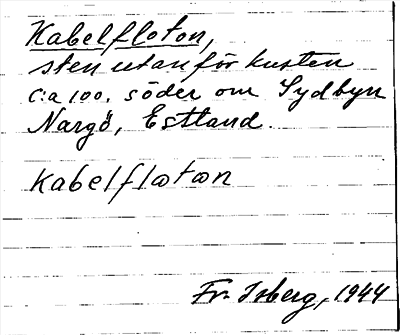 Kabelfloton,
sten utanför kusten
c:a 100. söder om Sydbyn
Nargö, Estland.
kabelflωtωn
Fr. Isberg, 1944